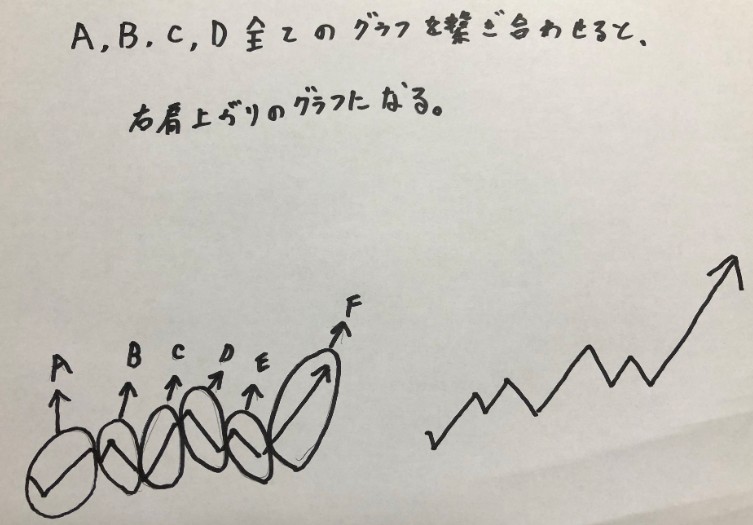 A, B, C, D 全てのグラフを繋ぎ合わせると、
右肩上がりのグラフになる。
A B C D E F